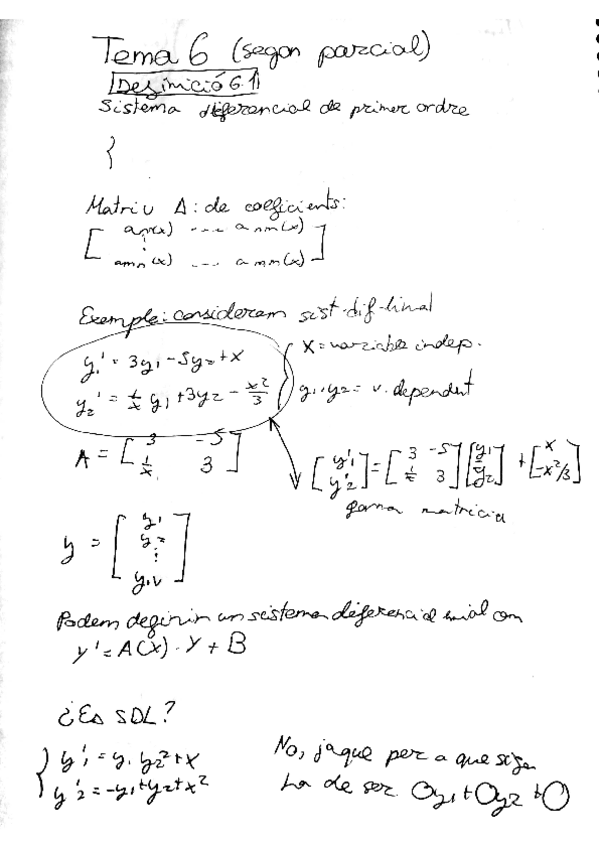 Tema 6 (segon parcial)
Definició 6.1
Sistema diferencial de primer ordre
{
Matriu A: de coeficients:
[ a₁₁(x) ... a₁ₙₘ(x) ]
[ aₘₙ(x) ... aₘₘ(x) ]
Exemple: considerem sist. dif. lineal
y₁' = 3y₁ - 5y₂ + x
y₂' = 1/x y₁ + 3y₂ - x²/3
x = variable indep.
y₁, y₂ = v. dependent
A = [ 3 -5 ]
[ 1/x 3 ]
[ y'₁ ] = [ 3 -5 ] [ y₁ ] + [ x ]
[ y'₂ ] [ 1/x 3 ] [ y₂ ] [ -x²/3 ]
forma matricial
y = [ y₁ ]
[ y₂ ]
[ ⋮ ]
[ yₙ ]
Podem definir un sistema diferencial lineal com
y' = A(x) · Y + B
¿Es SDL?
{ y'₁ = y₁ y₂² + x
y'₂ = -y₁ + y₂ + x²
No, ja que per a que sigui
ha de ser Oy₁ + Oy₂ + O